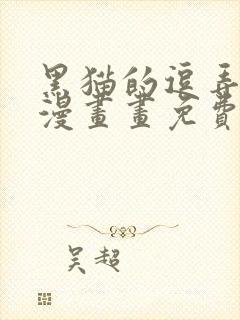 黑猫的逗弄
漫畫畫免費
吴超